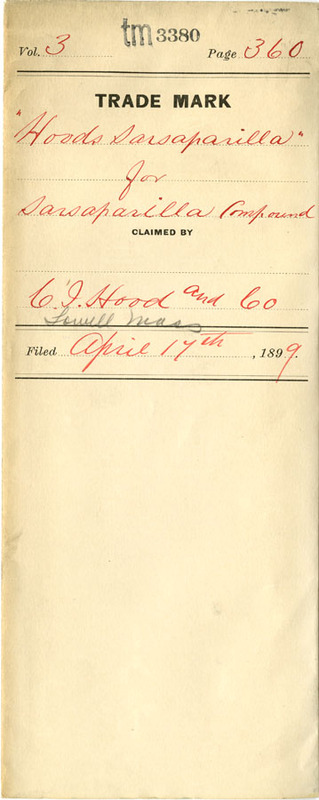 tm 3380
Vol. 3 Page 360
TRADE MARK
"Hoods Sarsaparilla"
for
Sarsaparilla Compound
CLAIMED BY
C. I. Hood and Co
Lowell Mass
Filed April 17th, 1899.